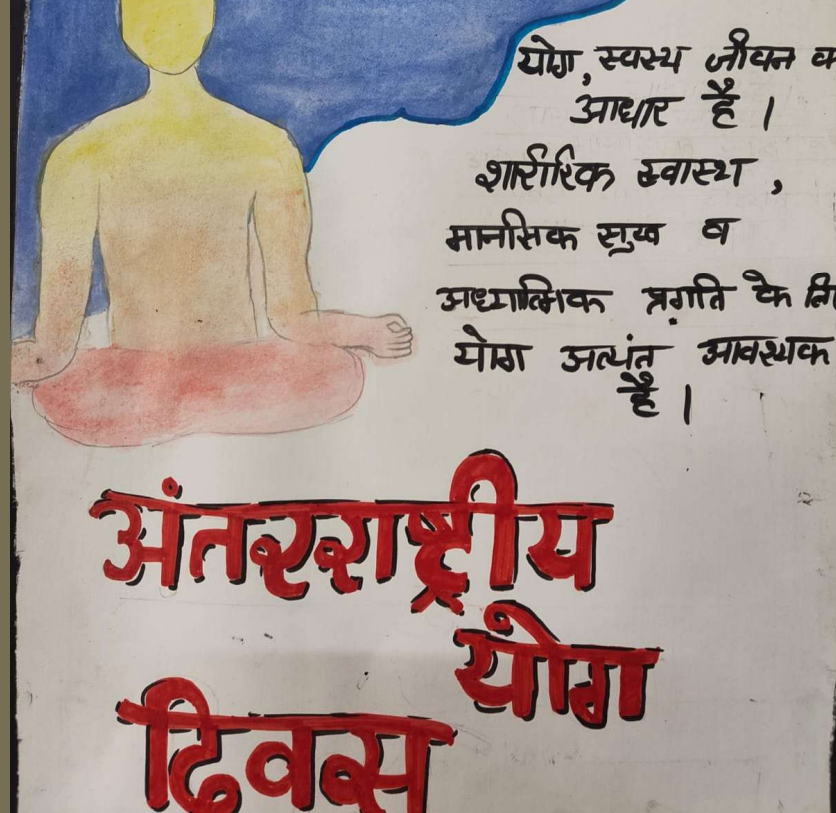 योग, स्वस्थ जीवन क
आधार है।
शारीरिक स्वास्थ,
मानसिक सुख व
अध्यात्मिक प्रगति के लि
योग अत्यंत आवश्यक
है।
अंतरराष्ट्रीय
योग
दिवस